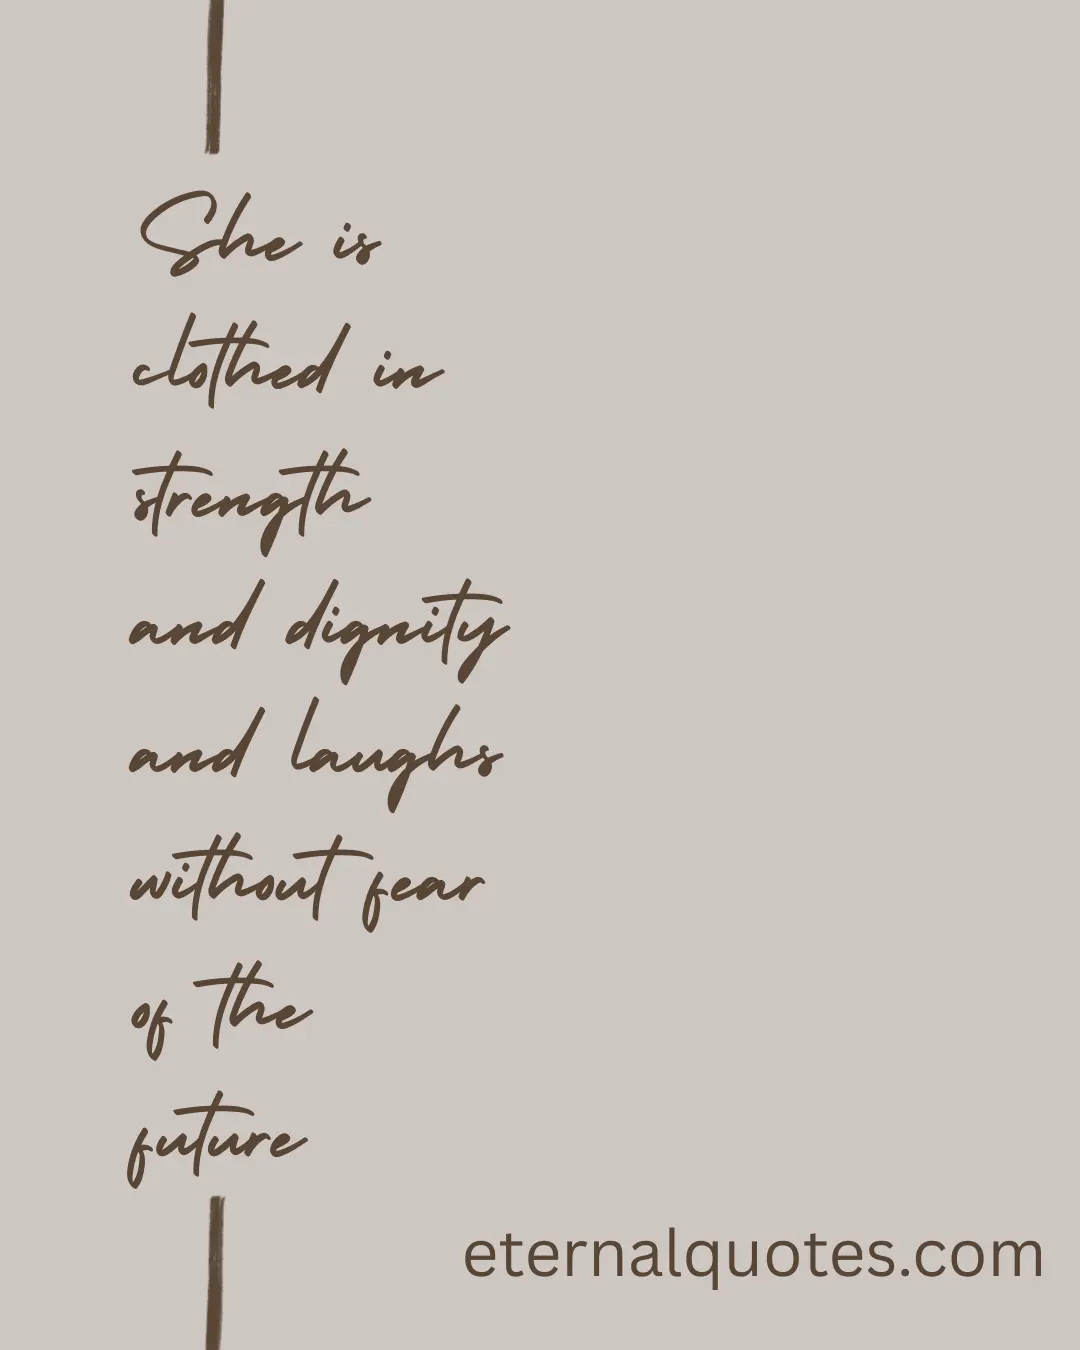 She is
clothed in
strength
and dignity
and laughs
without fear
of the
future
eternalquotes.com